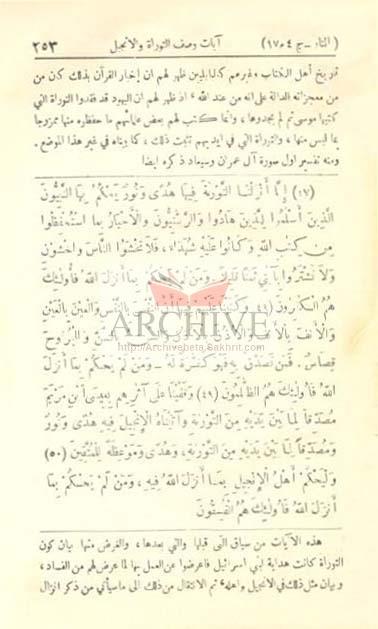 ( المنار ـ ج ٤ م ١٧ ) آيات وصف التوراة والانجيل ٢٥٣
تاريخ أهل الكتاب وغيرهم كدلبلدين ظهر لهم ان إخبار القرآن بذلك كان من
من معجزاته الدالة على انه من عند الله ، اذ ظهر لهم ان اليهود قد فقدوا التوراة التي
كتبها موسى ثم لم يجدوها ، وانما كتب لهم بعض علمائهم ما حفظوه منها ممزوجا
بما ليس منها ، والتوراة التي في ايديهم تثبت ذلك ، كما بيناه في غير هذا الموضع .
ومنه تفسير اول سورة آل عمران وسيعاد ذكره ايضا
(٤٧) إِنَّا أَنْزَلْنَا التَّوْرَاةَ فِيهَا هُدًى وَنُورٌ يَحْكُمُ بِهَا النَّبِيُّونَ
الَّذِينَ أَسْلَمُوا لِلَّذِينَ هَادُوا وَالرَّبَّنِيُّونَ وَالْأَحْبَارُ بِمَا اسْتُحْفِظُوا
مِن كِتَبِ اللهِ وَكَانُوا عَلَيْهِ شُهَدَاءَ ، فَلَا تَخْشَوُا النَّاسَ وَاخْشَوْنِ
وَلَا تَشْتَرُوا بِآيَتِي ثَمَنًا قَلِيلًا ، وَمَنْ لَمْ يَحْكُمْ بِمَا أَنْزَلَ اللهُ فَأُولَئِكَ
هُمُ الْكَفِرُونَ (٤٨) وَكَتَبْنَا عَلَيْهِمْ بِالنَّفْسِ وَالْعَيْنَ بِالْعَيْنِ
وَالْأَنْفَ بِالْأَنْفِ وَالْجُرُوحَ
ARCHIVE
http://Archivebeta.Sakhrit.com
قِصَاصٌ . فَمَنْ تَصَدَّقَ بِهِ فَهُوَ كَفَّارَةٌ لَهُ ـ وَمَنْ لَمْ يَحْكُمْ بِمَا أَنْزَلَ
اللهُ فَأُولَئِكَ هُمُ الظَّلِمُونَ (٤٩) وَقَفَّيْنَا عَلَى آثَرِهِم بِعِيسَى ابْنِ مَرْيَمَ
مُصَدِّقًا لِمَا بَيْنَ يَدَيْهِ مِنَ التَّوْرَةِ وَآتَيْنَهُ الْإِنْجِيلَ فِيهِ هُدًى وَنُورٌ
وَمُصَدِّقًا لِمَا بَيْنَ يَدَيْهِ مِنَ التَّوْرَيةِ ، وَهُدًى وَمَوْعِظَةً لِلْمُتَّقِينَ (٥٠)
وَلْيَحْكُمْ أَهْلُ الْإِنْجِيلِ بِمَا أَنْزَلَ اللهُ فِيهِ ، وَمَنْ لَمْ يَحْكُمْ بِمَا
أَنْزَلَ اللهُ فَأُولَئِكَ هُمُ الْفَسِقُونَ
هذه الآيات من سياق التي قبلها والتي بعدها ، والغرض منها بيان كون
التوراة كانت هداية لبني اسرائيل فاعرضوا عن العمل بها لما عرض لهم من الفساد ،
وبيان مثل ذلك في الانجيل واهله ، ثم الانتقال من ذلك الى ما سيأتي من ذكر انزال